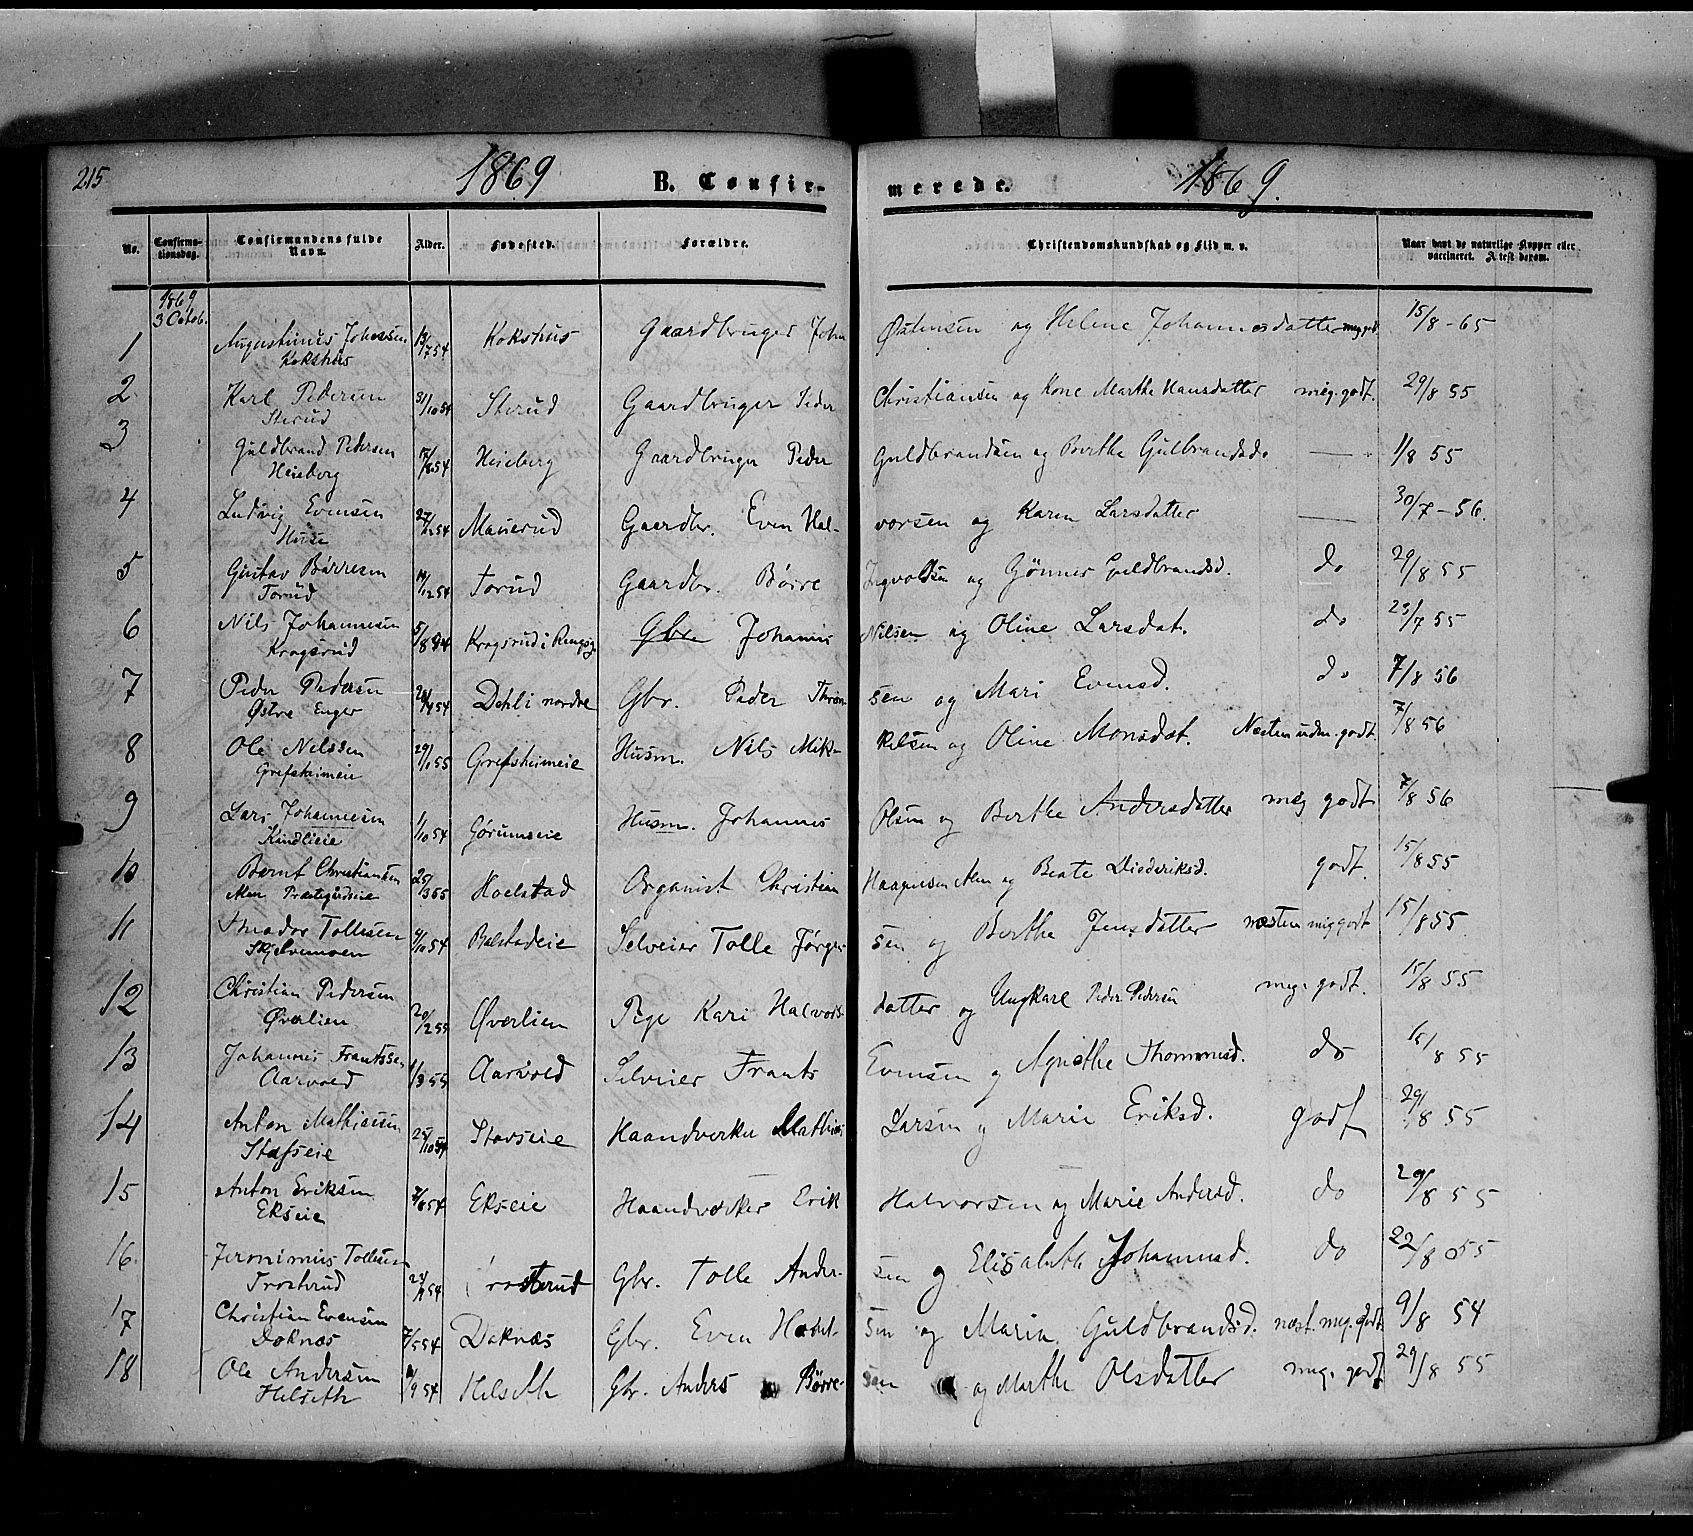 215
1869 B. Confir- merede. 1869.
No. Confirmationsdag. Confirmandens fulde Navn. Alder. Fødested. Forældre. Christendomskundskab og Flid m. v. Naar havt de naturlige Kopper eller vaccineret. Attest derom.
1869
3 Octob.
1 Augustinus Johnssen 13/7 54 Kokshus Gaardbruger John Østensen og Helene Johannesdatter meg. god. 15/8-65
Kokshus
2 Karl Pedersen 31/10 54 Sterud Gaardbruger Peder Christiansen og Kone Marthe Hansdatter meg. godt. 29/8 55
Sterud
3 Guldbrand Pedersen 15/8 54 Heieberg Gaardbruger Peder Guldbrandsen og Berthe Gulbrandsd. — 1/8 55
Heieberg
4 Ludvig Evensen 54 Mauerud Gaardbr. Even Halvorsen og Karen Larsdatter — 30/7-56.
Huse
5 Gustav Børresen 14/12 54 Torud Gaardbr. Børre Ingvoldsen og Gønner Guldbrandsd. do 29/8 55
Torud
6 Nils Johannesen 5/8 54 Kragsrud i Ringsg. Gbr. Johannes Nilsen og Oline Larsdat. do 23/7 55
Kragsrud
7 Peder Pedersen 54 Dehli nordre Gbr. Peder Thron- sen og Mari Evensd. do 7/8 56
Østre Enger
8 Ole Nilssen 29/1 55 Grefsheimeie Husm. Nils Mik- kelsen og Oline Monsdat. Næsten uden. godt. 7/8 56
Grefsheimeie
9 Lars Johannesen 1/10 54 Gørumseie Husm. Johannes Olsen og Berthe Andersdatter meg godt 7/8 56
Kindlieie
10 Bernt Christiansen 25/3 55 Hoelstad Organist Christian Haagensen Alm og Beate Diederiksd. godt. 15/8 55
Alm Præstegårdseie
11 Theodor Tollesen 9/10 54 Balstadeie Selveier Tolle Jørgen- sen og Berthe Jensdatter næsten meg godt 15/8 55
Skjelvenoen
12 Christian Pedersen 20/2 55 Øverlien Pige Kari Halvors- datter og Ungkarl Peder Pedersen meg. godt. 15/8 55
Øverlien
13 Johannes Frantssen 1/3 55 Aarvold Selveier Frants Evensen og Agnethe Thommesd. do 15/8 55
Aarvold
14 Anton Mathiesen 25/10 54 Stavseie Haandverker Mathias Larsen og Marie Eriksd. godt 29/8 55
Stafseie
15 Anton Eriksen 54 Ekseie Haandverker Erik Halvorsen og Marie Andersd. do 29/8 55
Ekseie
16 Jeronimus Tollesen 54 Trosterud Gbr. Tolle Ander- sen og Elisabeth Johannesd. do 22/8 55
Trosterud
17 Christian Evensen 7/5 54 Doknæs Gbr. Even Hovel- sen og Maria Guldbrandsd. næst. meg. godt 9/8 54
Doknæs
18 Ole Andersen 9 54 Helseth Gbr. Anders Børre- sen og Marthe Olsdatter meg. godt 29/8 55
Helseth